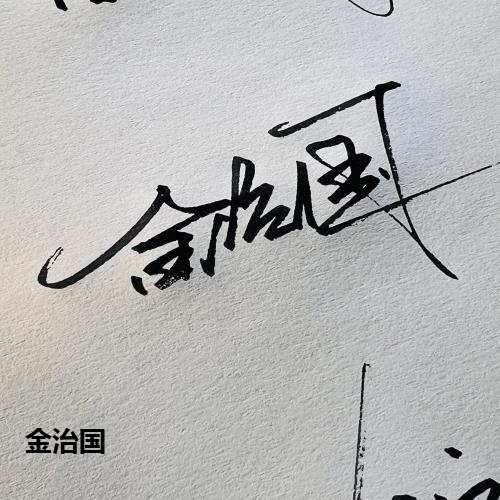 金治国
金治国